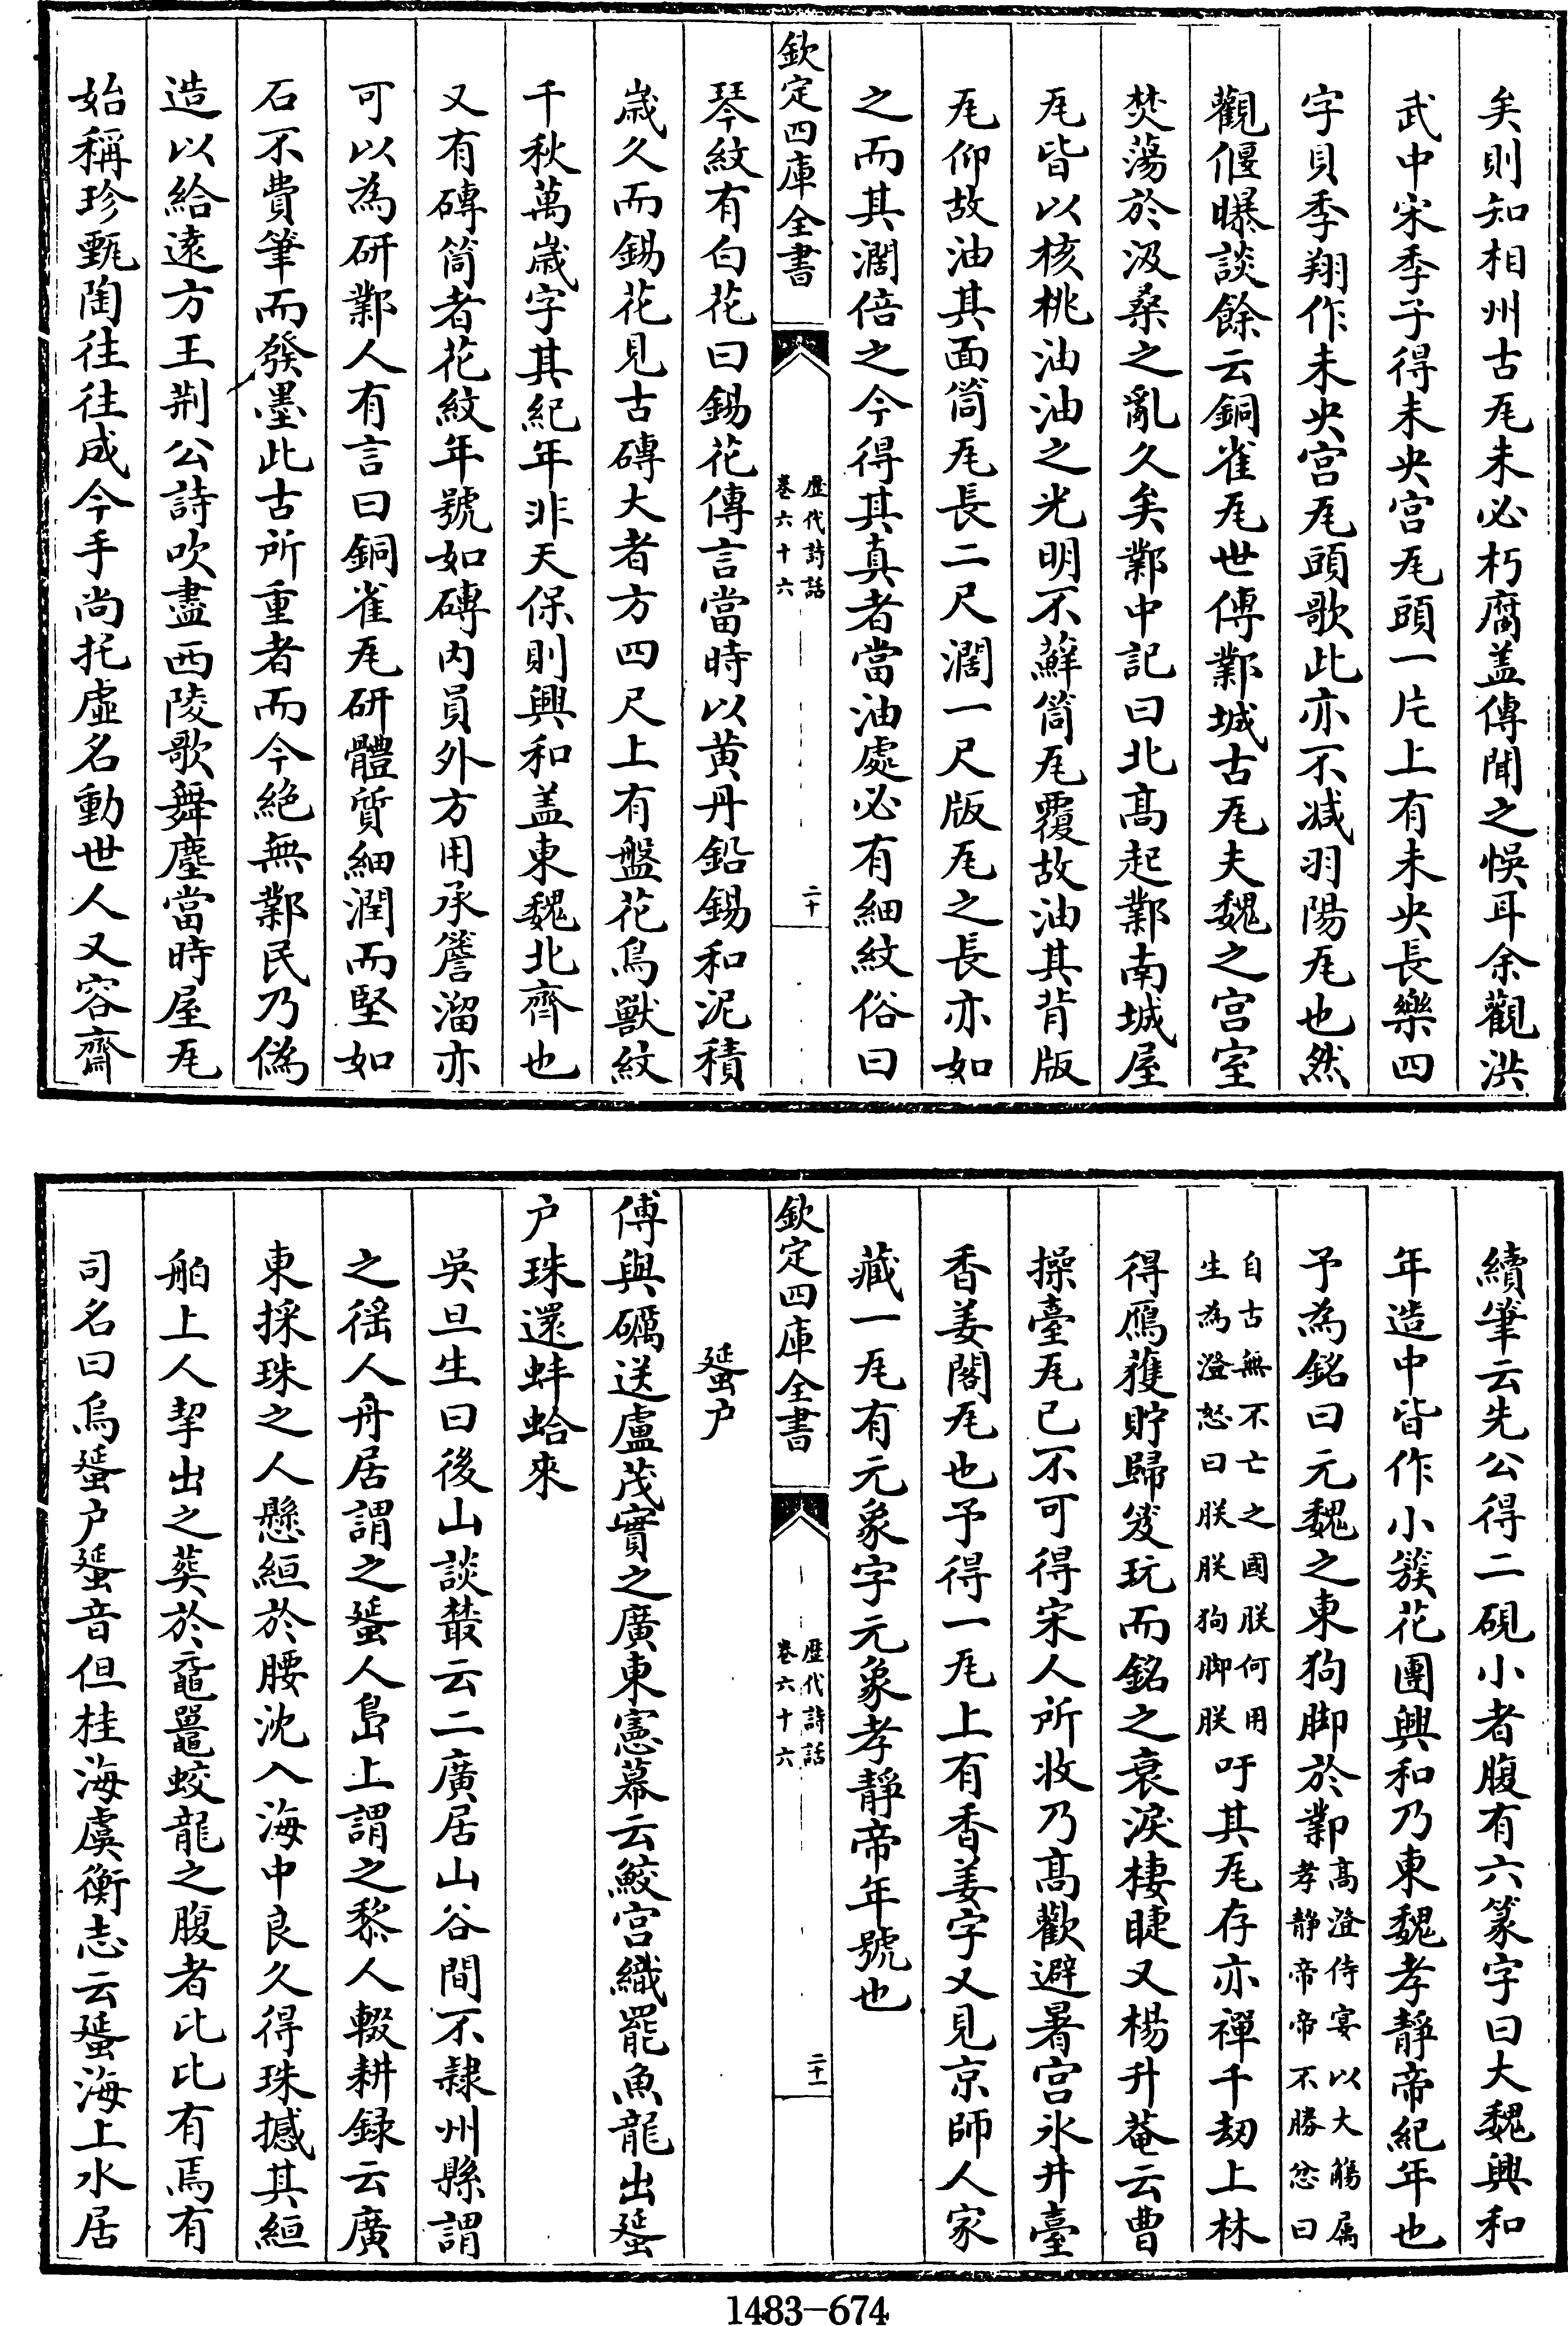 矣則知相州古瓦未必朽腐蓋傳聞之悞耳余觀洪
武中宋季子得未央宫瓦頭一片上有未央長樂四
字貝季翔作未央宫瓦頭歌此亦不減羽陽瓦也然
觀偃曝談餘云銅雀瓦世傳鄴城古瓦夫魏之宫室
焚蕩於汲桑之亂久矣鄴中記曰北髙起鄴南城屋
瓦皆以核桃油油之光明不蘚筒瓦覆故油其背版
瓦仰故油其面筒瓦長二尺濶一尺版瓦之長亦如
之而其濶倍之今得其真者當油處必有細紋俗曰
欽定四庫全書
歴代詩話
卷六十六
二十
琴紋有白花曰錫花傳言當時以黄丹鉛錫和泥積
歲久而錫花見古磚大者方四尺上有盤花鳥獸紋
千秋萬歲字其紀年非天保則興和盖東魏北齊也
又有磚筒者花紋年號如磚内員外方用承簷溜亦
可以為研鄴人有言曰銅雀瓦研體質細潤而堅如
石不費筆而發墨此古所重者而今絶無鄴民乃偽
造以給遠方王荆公詩吹盡西陵歌舞塵當時屋瓦
始稱珍甄陶往往成今手尚托虛名動世人又容齋
續筆云先公得二硯小者腹有六篆字曰大魏興和
年造中皆作小簇花團興和乃東魏孝靜帝紀年也
予為銘曰元魏之東狗脚於鄴髙澄侍宴以大觴属孝静帝帝不勝忿曰
自古無不亡之國朕何用生為澄怒曰朕朕狗脚朕吁其瓦存亦禪千刼上林
得鴈蒦貯歸笈玩而銘之衰淚棲睫又楊升菴云曹
操臺瓦已不可得宋人所收乃髙歡避暑宫氷井臺
香姜閣瓦也予得一瓦上有香姜字又見京師人家
藏一瓦有元象字元象孝靜帝年號也
欽定四庫全書
歴代詩話
卷六十六
二十一
蜑户
傅與礪送盧茂實之廣東憲幕云鮫宫織罷魚龍出蜑
户珠還蚌蛤來
吳旦生曰後山談叢云二廣居山谷間不隸州縣謂
之徭人舟居謂之蜑人島上謂之黎人輟耕録云廣
東採珠之人懸絙於腰沈入海中良久得珠撼其絙
舶上人挈出之葬於黿鼉蛟龍之腹者比比有焉有
司名曰烏蜑户蜑音但桂海虞衡志云蜑海上水居
1483-674